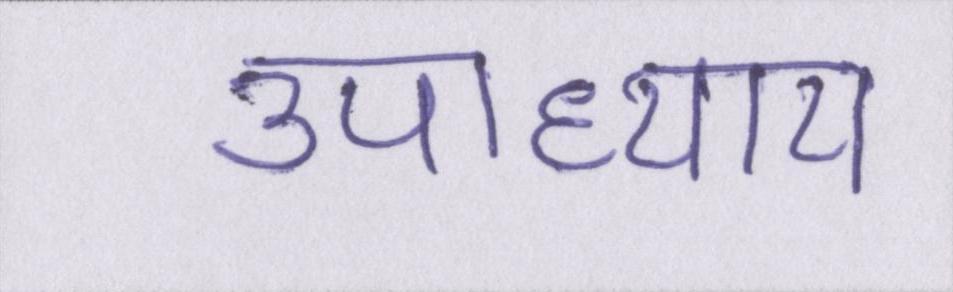 उपाध्याय